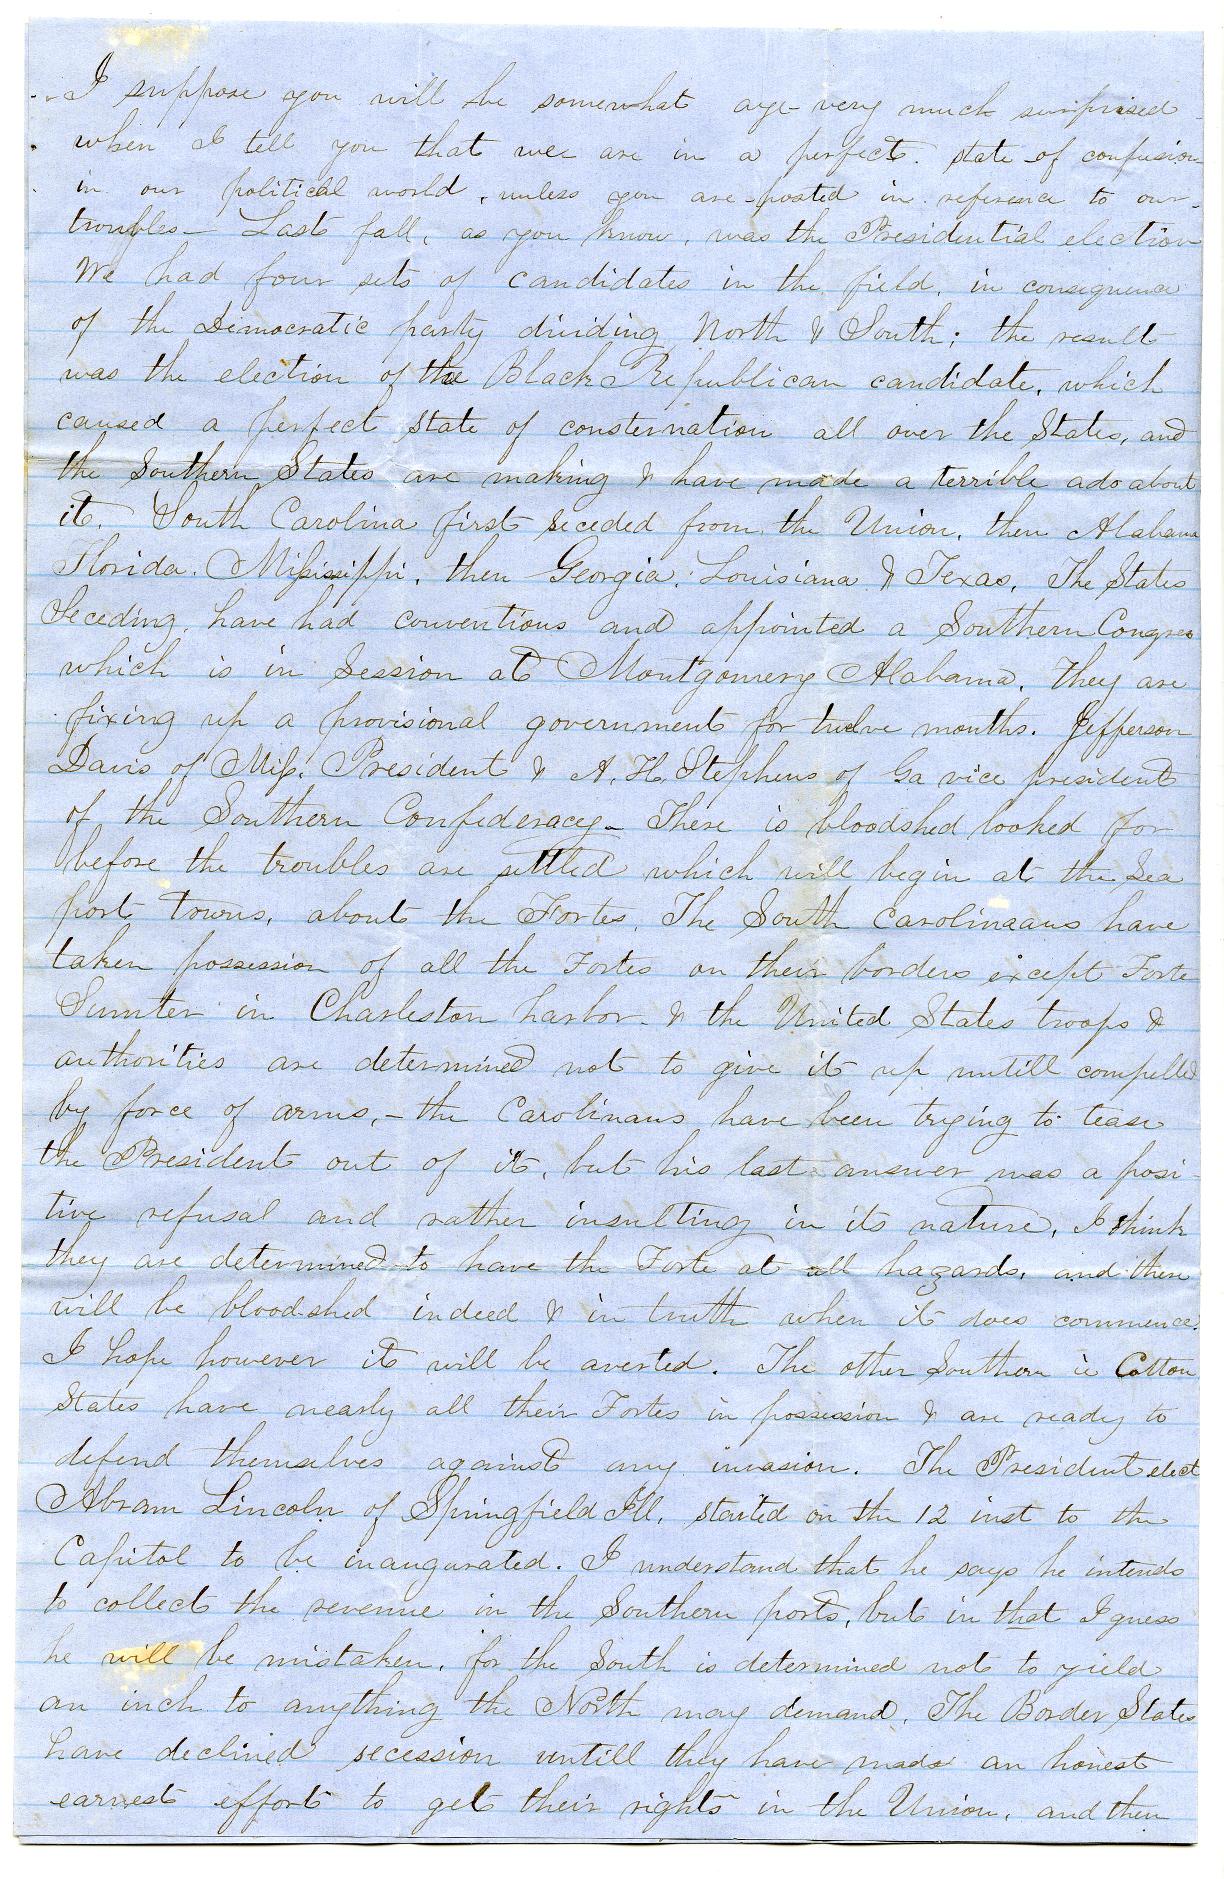 I suppose you will be somewhat aye very much surprised
when I tell you that we are in a perfect state of confusion
in our political world, unless you are posted in reference to our
troubles— Last fall, as you know, was the Presidential election
We had four sets of candidates in the field, in consequence
of the Democratic party dividing North & South; the result
was the election of the Black Republican candidate, which
caused a perfect state of consternation all over the States, and
the Southern States are making & have made a terrible ado about
it. South Carolina first seceded from the Union, then Alabama
Florida, Missisippi, then Georgia, Louisiana & Texas. The States
Seceding, have had conventions and appointed a Southern Congress
which is in Session at Montgomery Alabama. They are
fixing up a provisional government for twelve months. Jefferson
Davis of Miss. President & A. H. Stephens of Ga vice president
of the Southern Confederacy— There is bloodshed looked for
before the troubles are settled which will begin at the Sea
port towns, about the Fortes. The South Carolinaans have
taken possession of all the Fortes on their borders except Forte
Sumter in Charleston harbor— & the United States troops &
authorities are determined not to give it up untill compelled
by force of arms,— the Carolinans have been trying to tease
the President out of it, but his last answer was a posi-
tive refusal and rather insulting in its nature, I think
they are determined to have the Forte at all hazards, and there
will be bloodshed indeed & in truth when it does commence.
I hope however it will be averted. The other Southern ie Cotton
States have nearly all their Fortes in possession & are ready to
defend themselves against any invasion. The President elect
Abram Lincoln of Springfield Ill, started on the 12 inst to the
Capitol to be inaugurated. I understand that he says he intends
to collect the revenue in the Southern ports, but in that I guess
he will be mistaken, for the South is determined not to yield
an inch to anything the North may demand. The Border States
have declined secession untill they have made an honest
earnest effort to get their rights in the Union, and then